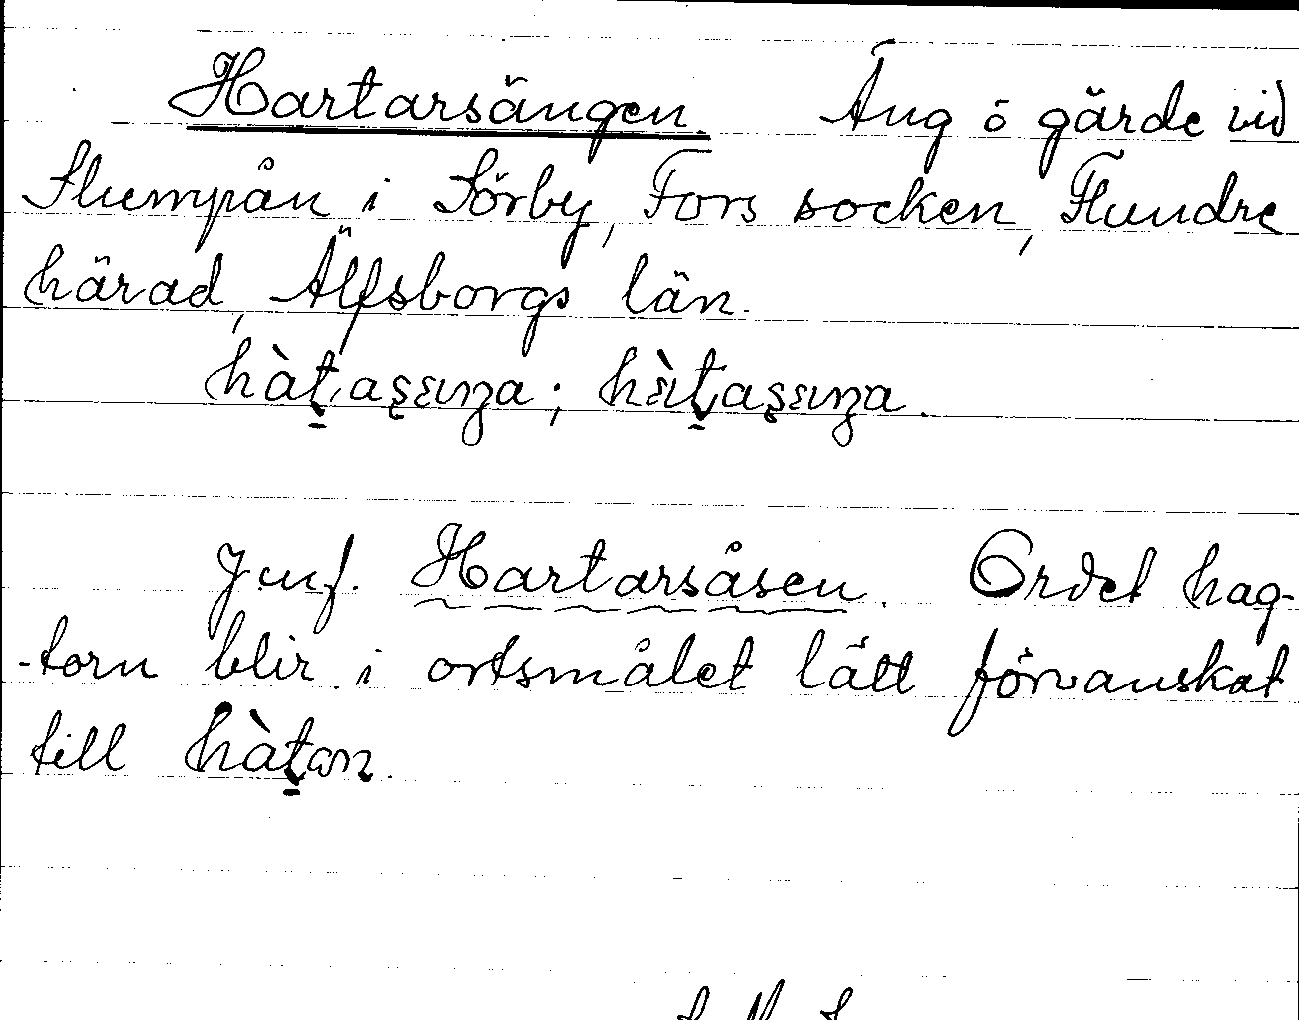 Hartarsängen. Äng ö gärde vid
Slumpån i Sörby, Fors socken, Flundre
härad, Älfsborgs län.
hàt̠a
Jmf. Hartarsåsen. Ordet hag-
-torn blir i ortsmålet lätt förvanskat
till hàt̠an.